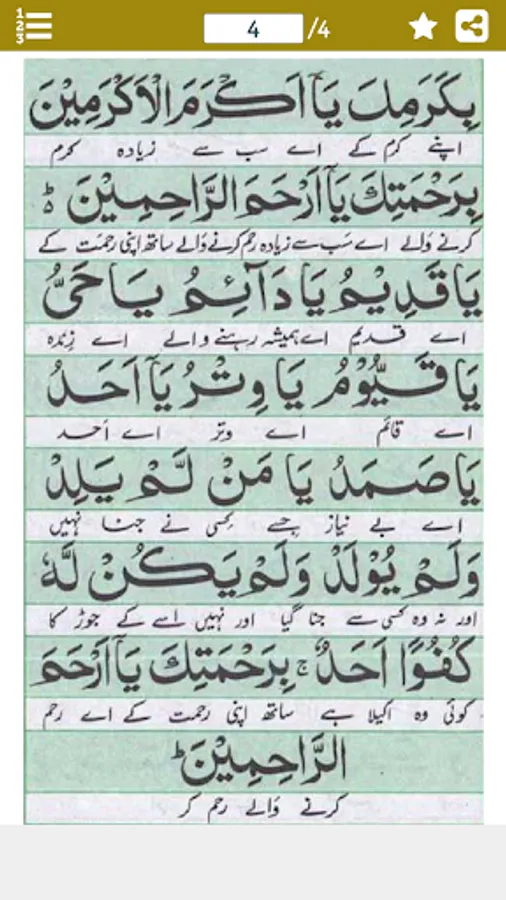 4 /4
بِكَرَمِكَ يَآ اَكْرَمَ الْاَكْرَمِيْنَ
اپنے کرم کے اے سب سے زیادہ کرم
بِرَحْمَتِكَ يَآ اَرْحَمَ الرَّاحِمِيْنَ ؕ
کرنے والے اے سب سے زیادہ رحم کرنے والے ساتھ اپنی رحمت کے
يَا قَدِيْمُ يَا دَآئِمُ يَا حَىُّ
اے قدیم اے ہمیشہ رہنے والے اے زندہ
يَا قَيُّوْمُ يَا وِتْرُ يَآ اَحَدُ
اے قائم اے وتر اے احد
يَا صَمَدُ يَا مَنْ لَّمْ يَلِدْ
اے بے نیاز جسے کسی نے جنا نہیں
وَلَمْ يُوْلَدْ وَلَمْ يَكُنْ لَّهٗ
اور نہ وہ کسی سے جنا گیا اور نہیں اسے کے جوڑ کا
كُفُوًا اَحَدٌ ۚ بِرَحْمَتِكَ يَآ اَرْحَمَ
کوئی وہ اکیلا ہے ساتھ اپنی رحمت کے اے رحم
الرَّاحِمِيْنَ ؕ
کرنے والے رحم کر